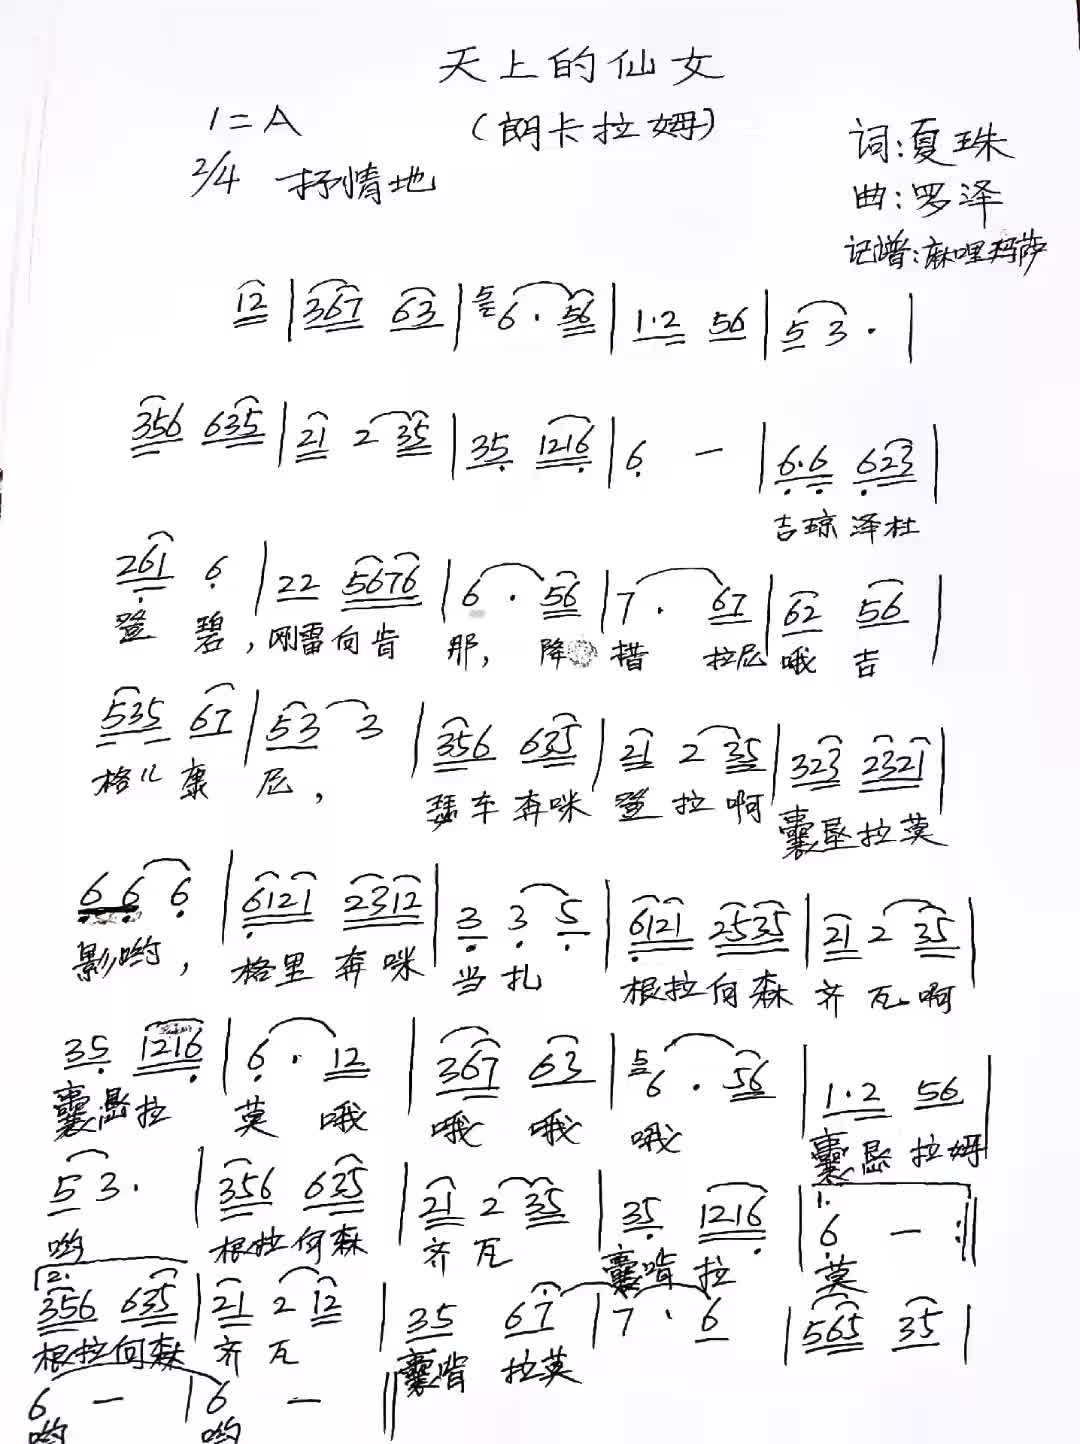 天上的仙女
1=A
（朗卡拉姆）
2/4 抒情地
词:夏珠
曲:罗泽
记谱:麻哩玛萨
12 | 367 63 | 5 6· 56 | 1·2 56 | 5 3· |
356 635 | 21 2 35 | 35 1216 | 6 — | 6·6 623 |
吉琼泽杜
261 6 | 22 5676 | 6 · 56 | 7 · 67 | 62 56 |
登 碧，刚雷向肯 那，降 措 拉尼 哦 吉
535 67 | 53 3 | 356 635 | 21 2 35 | 323 2321 |
格儿康 尼， 瑟车奔咪 登拉啊 囊垦拉莫
6 6 6 | 6121 2312 | 3 3 5 | 6121 2535 | 21 2 35 |
影哟， 格里奔咪 当扎 根拉向森 齐瓦啊
35 1216 | 6 · 12 | 367 63 | 5 6 · 56 | 1·2 56 |
囊 拉 莫 哦 哦 哦 哦 囊 拉姆
5 3 · | 356 635 | 21 2 35 | 35 1216 | 1. 6 — :||
哟 根拉向森 齐瓦 囊 拉 莫
2. 356 635 | 21 2 12 | 35 67 | 7 · 6 | 565 35 |
根拉向森 齐瓦 囊 拉莫
6 — | 6 — ||
哟 哟